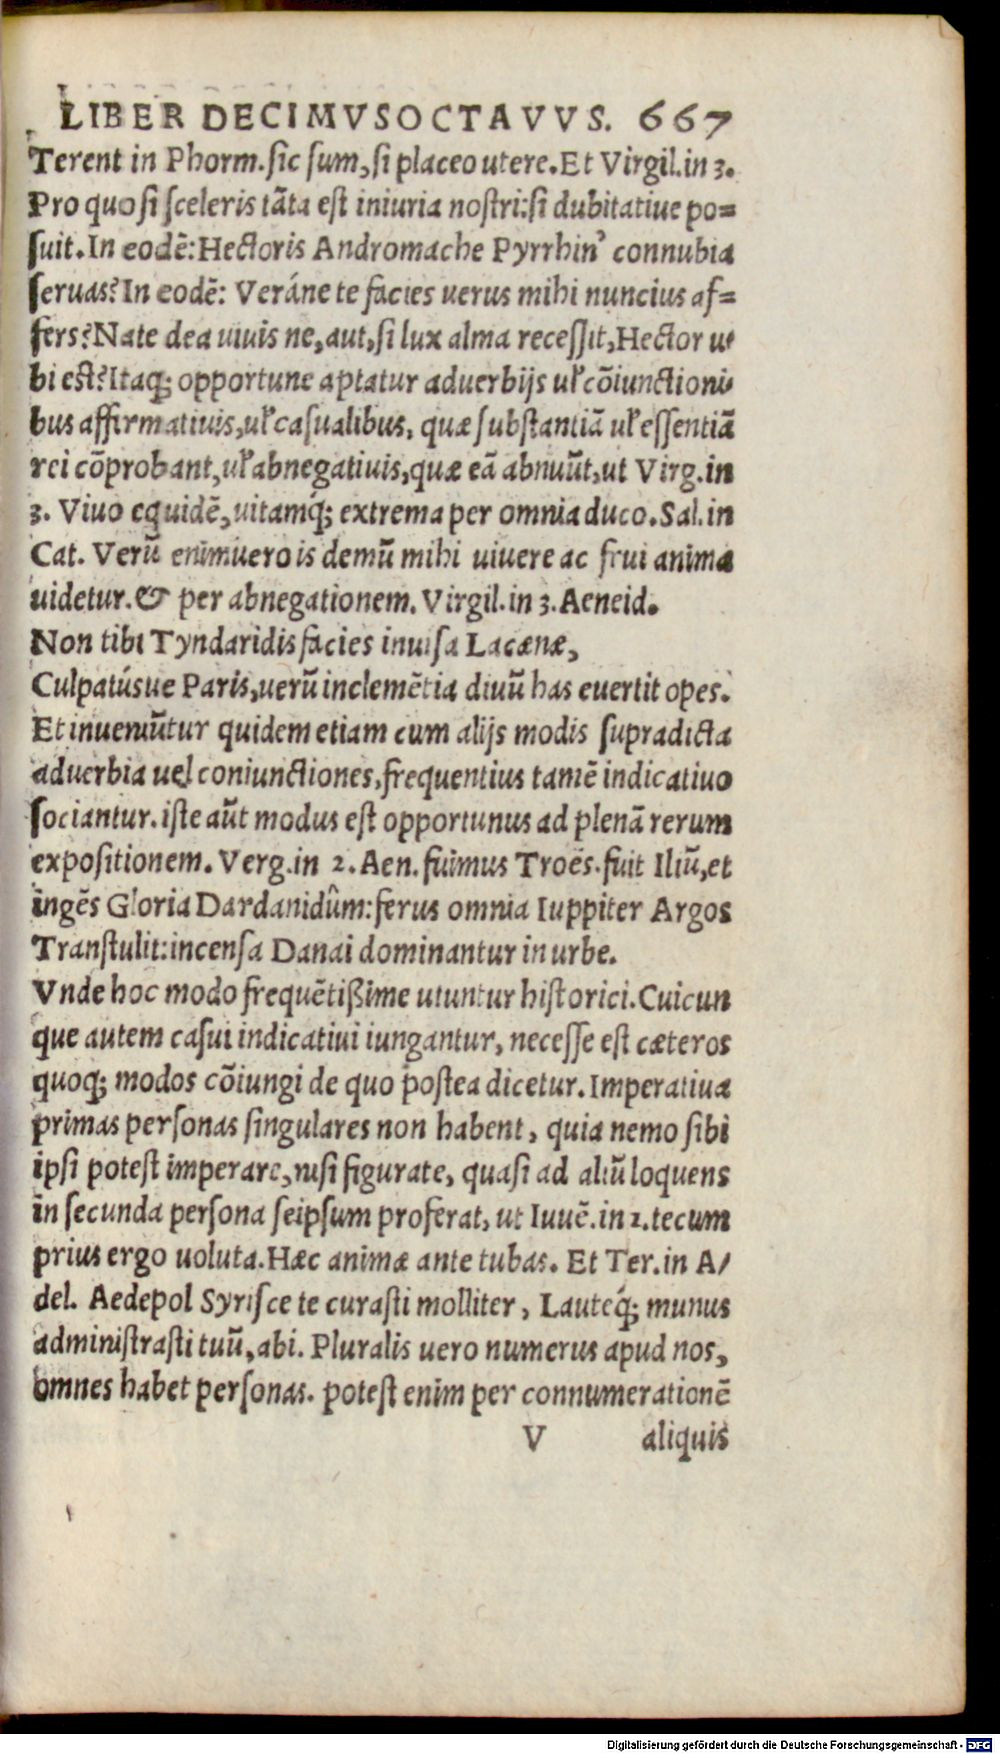 LIBER DECIMVSOCTAVVS. 667
Terent in Phorm. sic sum, si placeo utere. Et Virgil. in 3.
Pro quo si sceleris tãta est iniuria nostri: si dubitatiue po=
suit. In eodẽ: Hectoris Andromache Pyrrhin' connubia
seruas? In eodẽ: Veráne te facies uerus mihi nuncius af=
fers? Nate dea uiuis ne, aut, si lux alma recessit, Hector u-
bi est? Itaq; opportune aptatur aduerbijs uł cõiunctioni-
bus affirmatiuis, uł casualibus, quæ substantiã uł essentiã
rei cõprobant, uł abnegatiuis, quæ eã abnuũt, ut Virg. in
3. Viuo equidẽ, uitamq́; extrema per omnia duco. Sal. in
Cat. Verũ enimuero is demũ mihi uiuere ac frui anima
uidetur. & per abnegationem. Virgil. in 3. Aeneid.
Non tibi Tyndaridis facies inuisa Lacænæ,
Culpatúsue Paris, uerũ inclemẽtia diuũ has euertit opes.
Et inueniũtur quidem etiam cum alijs modis supradicta
aduerbia uel coniunctiones, frequentius tamẽ indicatiuo
sociantur. iste aũt modus est opportunus ad plenã rerum
expositionem. Verg. in 2. Aen. fuimus Troes. fuit Iliũ, et
ingẽs Gloria Dardanidûm: ferus omnia Iuppiter Argos
Transtulit: incensa Danai dominantur in urbe.
Vnde hoc modo frequẽtißime utuntur historici. Cuicun
que autem casui indicatiui iungantur, necesse est cæteros
quoq; modos cõiungi de quo postea dicetur. Imperatiua
primas personas singulares non habent, quia nemo sibi
ipsi potest imperare, nisi figurate, quasi ad aliũ loquens
in secunda persona seipsum proferat, ut Iuuẽ. in 1. tecum
prius ergo uoluta. Hæc animæ ante tubas. Et Ter. in A/
del. Aedepol Syrisce te curasti molliter, Lauteq́; munus
administrasti tuũ, abi. Pluralis uero numerus apud nos,
omnes habet personas. potest enim per connumerationẽ
V aliquis
Digitalisierung gefördert durch die Deutsche Forschungsgemeinschaft - DFG